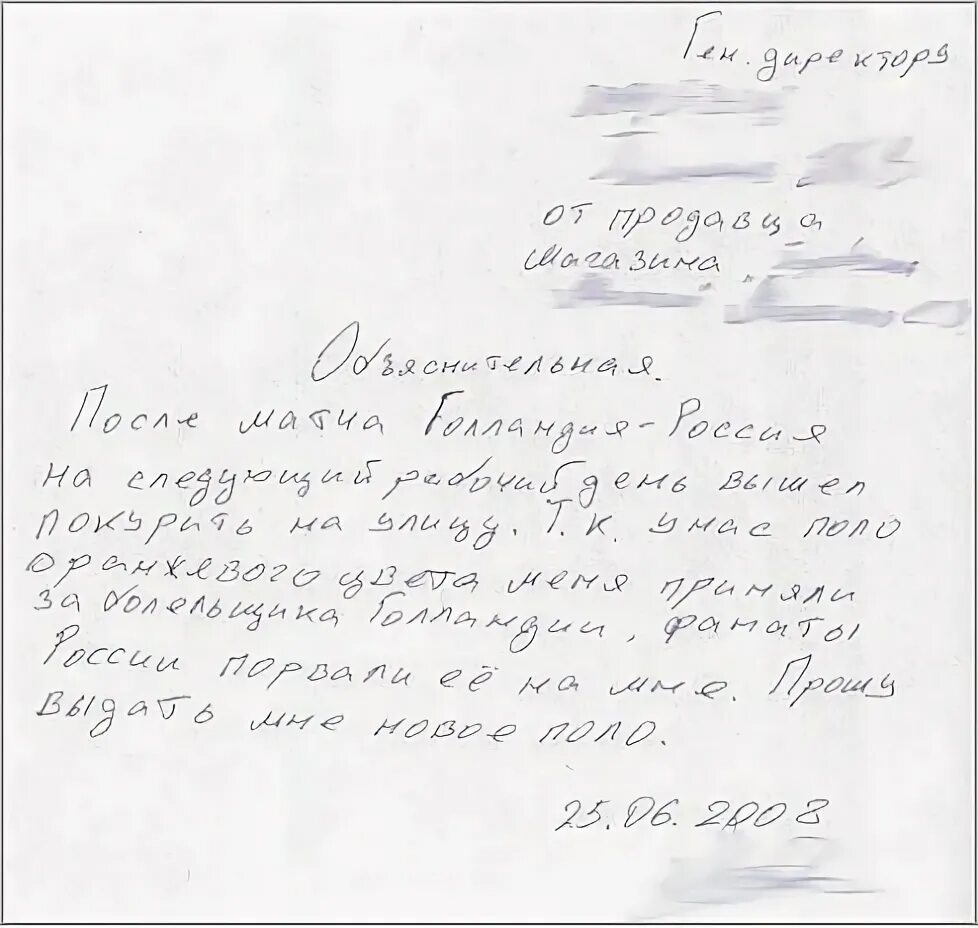 Ген. директору
от продавца
магазина
Объяснительная.
После матча Голландия-Россия
на следующий рабочий день вышел
покурить на улицу. Т.к. у нас поло
оранжевого цвета меня приняли
за болельщика Голландии, фанаты
России порвали её на мне. Прошу
выдать мне новое поло.
25.06.2008